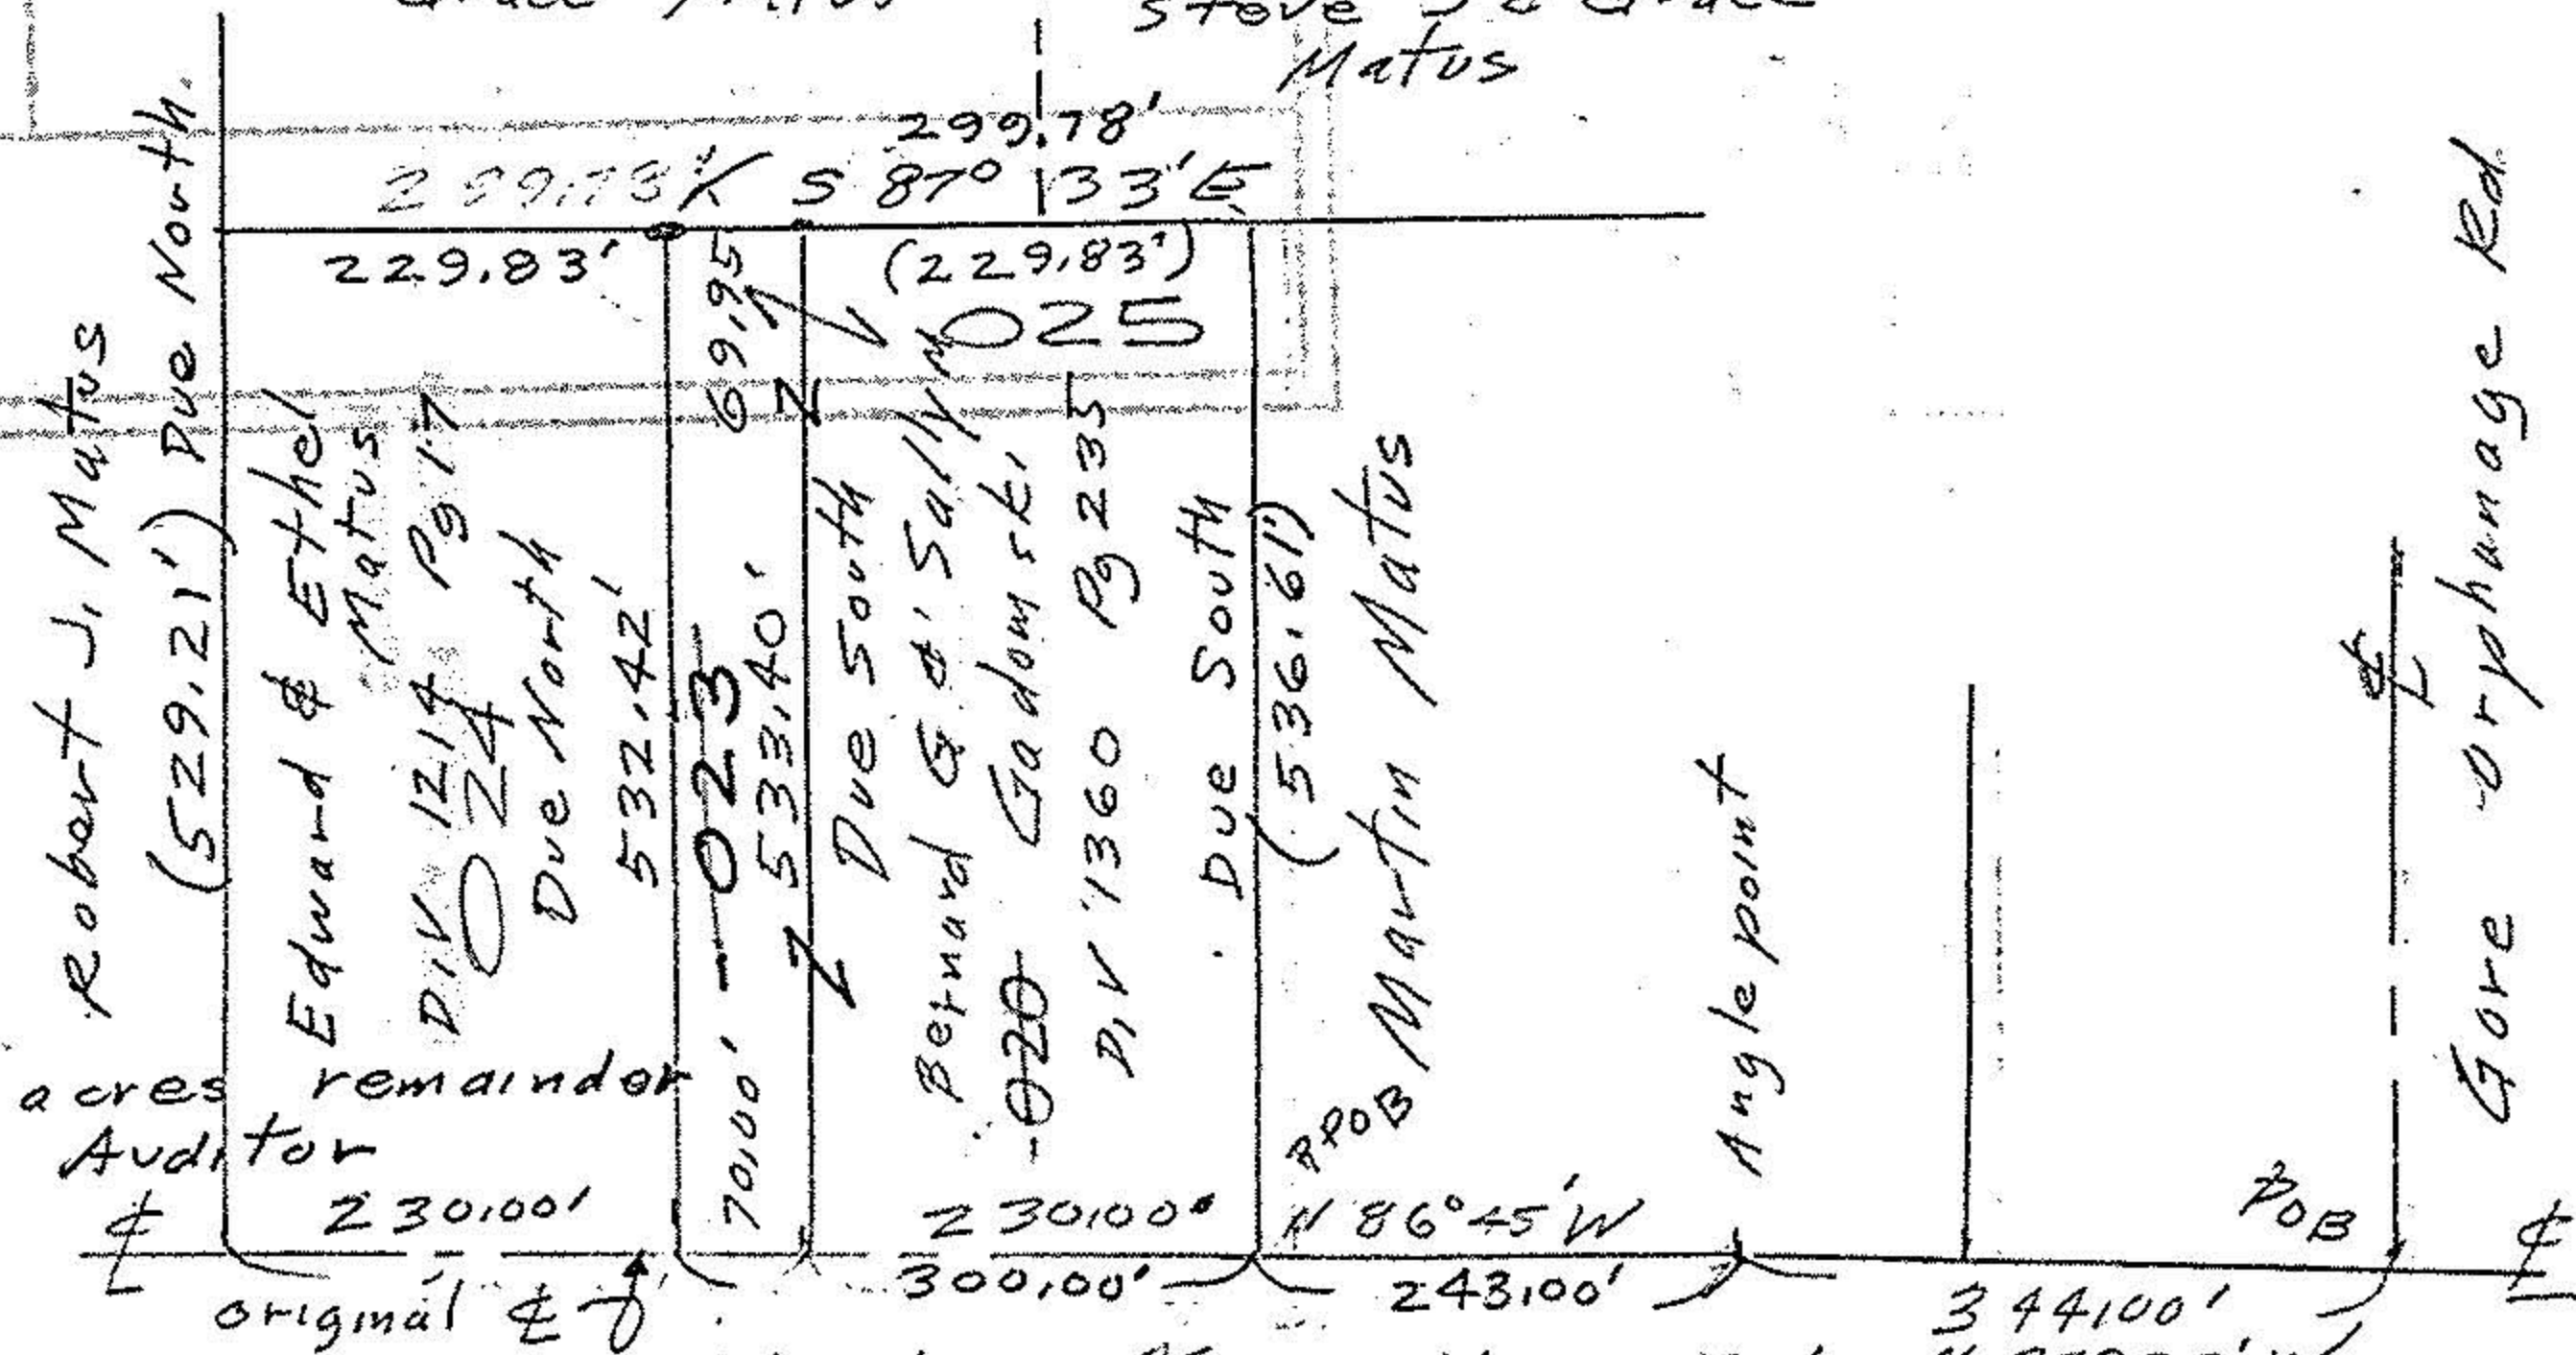 Steve J & Grace
Matus
299.78'
S 87° 33' E
229.83'
69.95
(229.83')
025
Robert J. Matus
(529.21') Due North.
Edward & Ethel
Matus
D.V 1214 Pg 17
024
Due North
532.42'
023
533.40'
Due South
Bernard G & Sally M
Gadomski
020
D.V 1360 Pg 235
Due South
(536.61')
Martin Matus
PPOB
Angle point
Gore orphanage Rd.
acres remainder
Auditor
230.00'
70.00'
230.00'
N 86° 45' W
POB
original ℄
300.00'
243.00'
344.00'